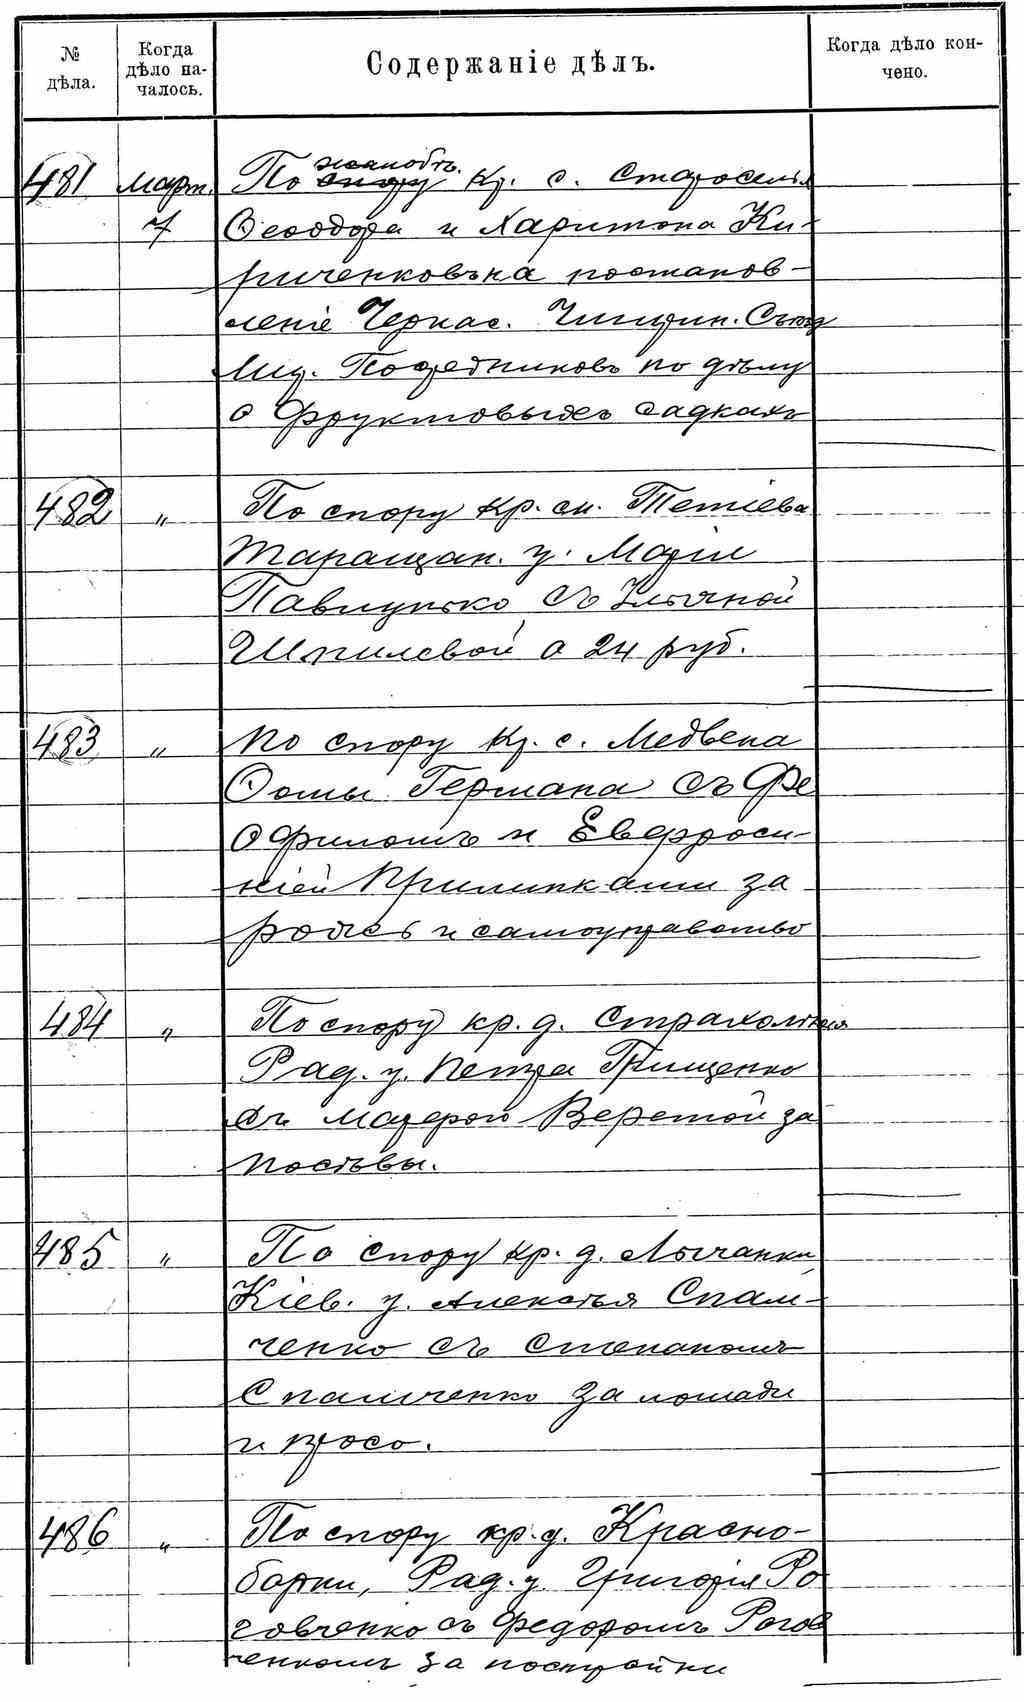 № дѣла.
Когда дѣло на-чалось.
Содержаніе дѣлъ.
Когда дѣло кон-чено.
481 Март. По спору жалобѣ кр. с. Староселья
7 Ѳеодора и Харитона Ки-
риченковъ на постанов-
леніе Черкас. Чигирин. Съѣзд
Мир. Посредниковъ по дѣлу
о фруктовыхъ садкахъ
482 " По спору кр. м. Тетіева
Таращан. у. Маріи
Павлунько съ
Шпилевой о 24 руб.
483 " По спору кр. с. Медвена
Ѳомы Германа съ Ѳе
офиломъ и Евфроси-
ніей Прилипками за
и самоуправство
484 " По спору кр. д. Страхолѣсья
Рад. у. Петра Грищенко
съ Веретой за
посѣвы.
485 " По спору кр. д. Лычанки,
Кіев. у. Алексѣя Спам-
ченко съ Степаномъ
Спамченко за лошади
и просо.
486 " По спору кр. д. Красно-
борки, Рад. у. Григорія Ро
говченко съ Федоромъ Рогов
ченкомъ за постройки